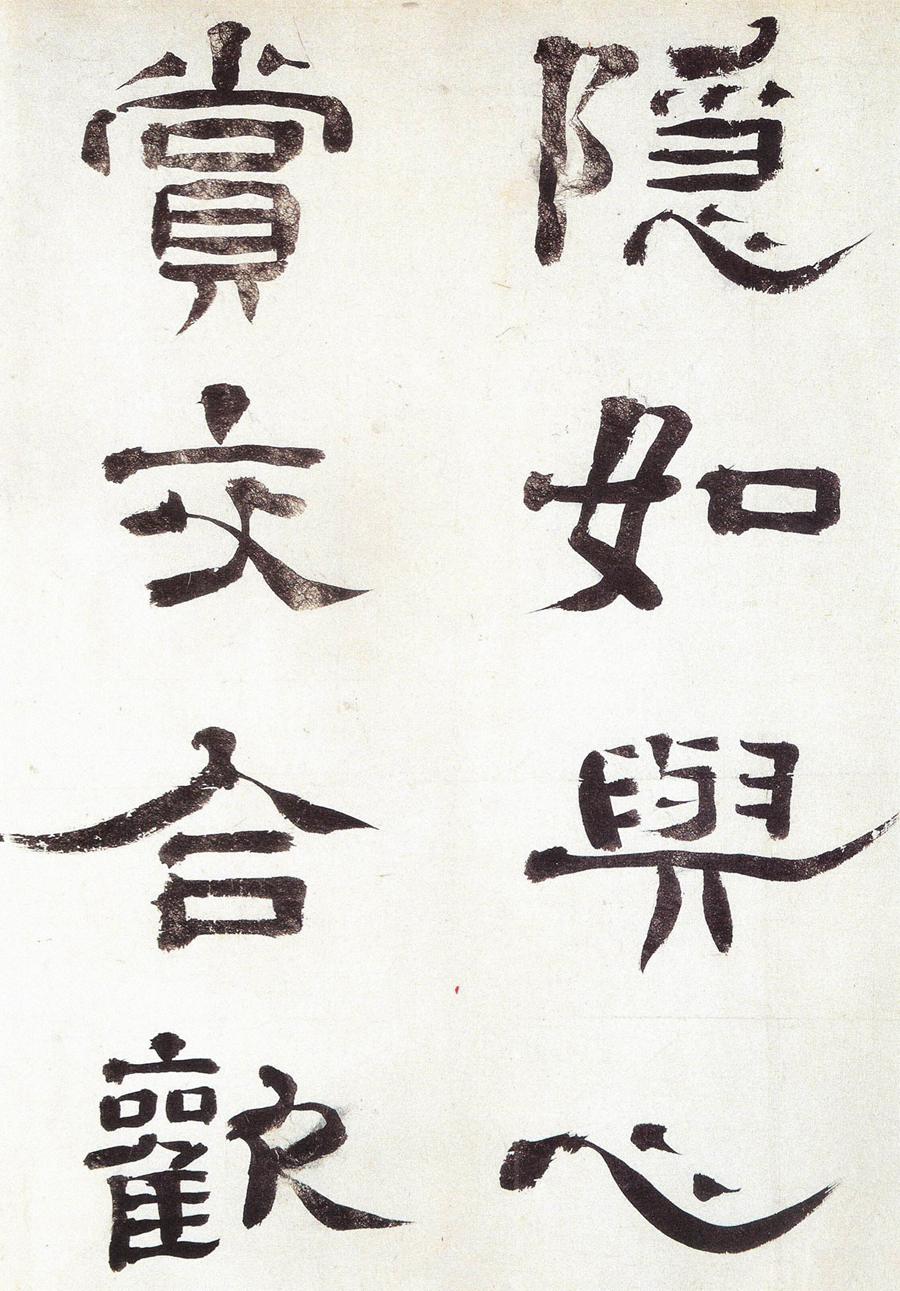 隱如與心
賞交合歡